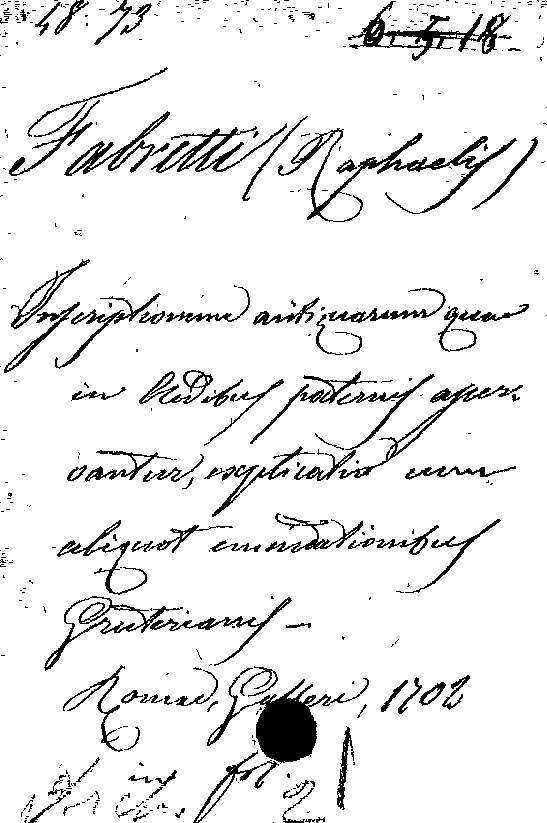 48.73
6.5.18
Fabretti (Raphaelis)
Inscriptionum antiquarum quae
in Aedibus paternis asser-
vantur, explicatio cum
aliquot emendationibus
Gruterianis –
Romae, Galleri, 1702
in fol.
Arch. 21